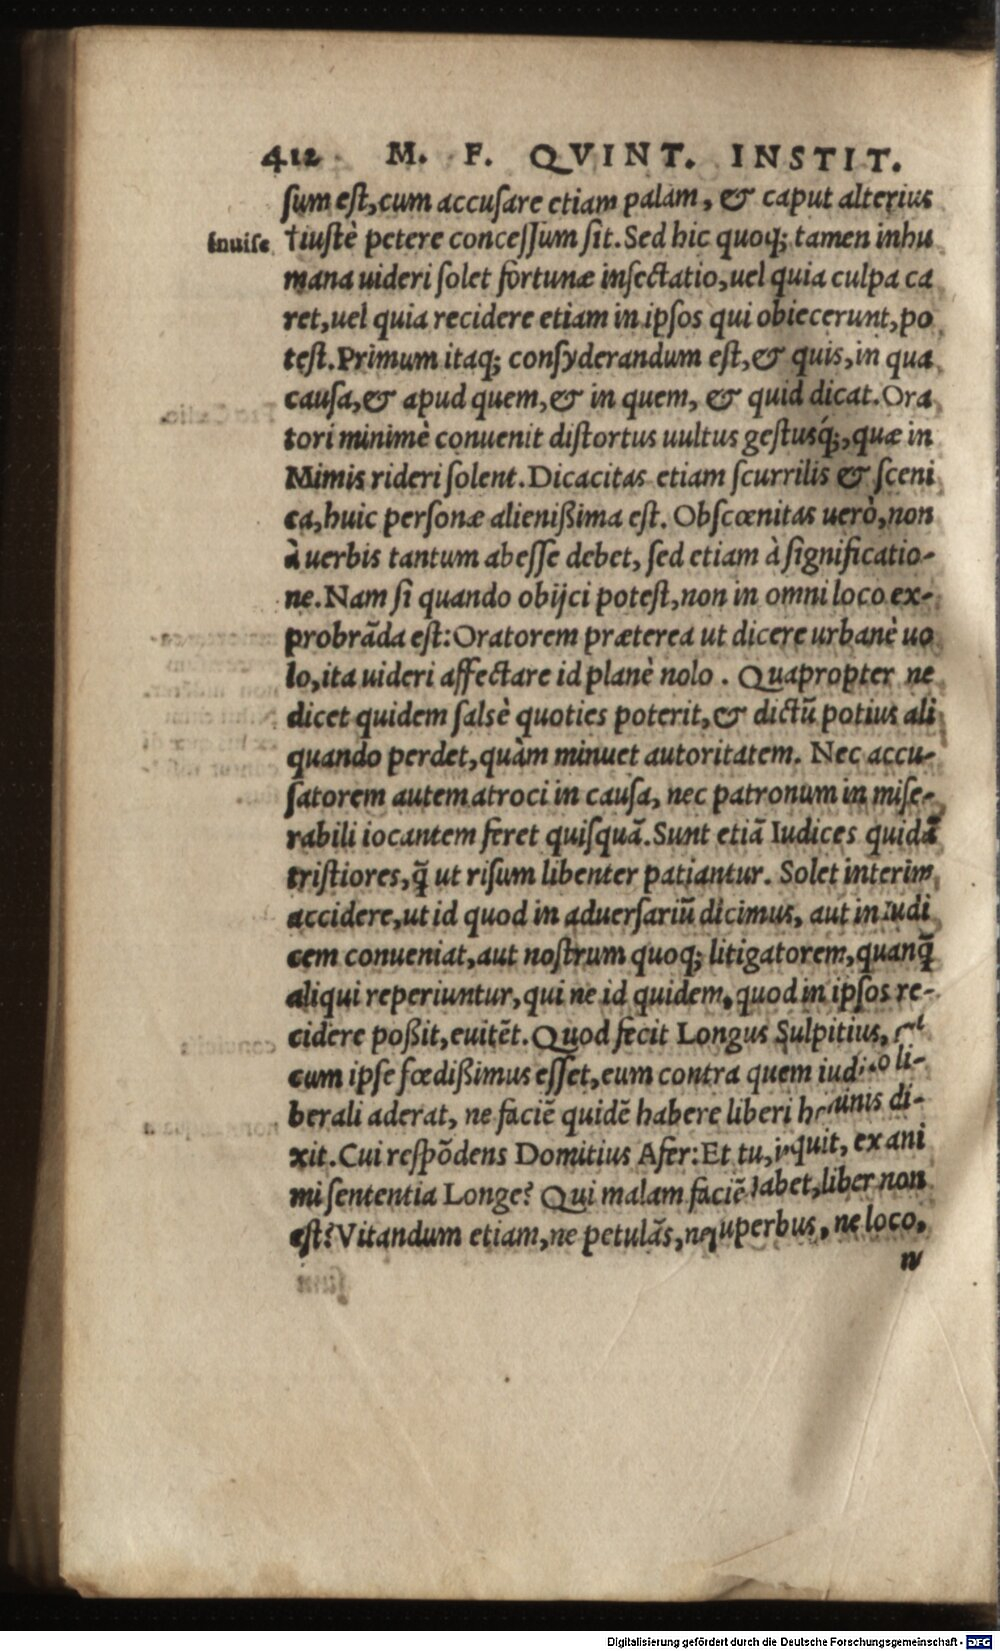 412 M. F. QVINT. INSTIT.
sum est, cum accusare etiam palam, & caput alterius
inuise †iustè petere concessum sit. Sed hic quoq; tamen inhu
mana uideri solet fortunæ insectatio, uel quia culpa ca
ret, uel quia recidere etiam in ipsos qui obiecerunt, po
test. Primum itaq; consyderandum est, & quis, in qua
causa, & apud quem, & in quem, & quid dicat. Ora
tori minimè conuenit distortus uultus gestusq́;, quæ in
Mimis rideri solent. Dicacitas etiam scurrilis & sceni
ca, huic personæ alienißima est. Obscœnitas uerò, non
à uerbis tantum abesse debet, sed etiam à significatio-
ne. Nam si quando obijci potest, non in omni loco ex-
probrãda est: Oratorem præterea ut dicere urbanè uo
lo, ita uideri affectare id planè nolo. Quapropter ne
dicet quidem salsè quoties poterit, & dictũ potius ali
quando perdet, quàm minuet autoritatem. Nec accu-
satorem autem atroci in causa, nec patronum in mise-
rabili iocantem feret quisquã. Sunt etiã Iudices quidã
tristiores, q̃ ut risum libenter patiantur. Solet interim
accidere, ut id quod in aduersariũ dicimus, aut in Iudi
cem conueniat, aut nostrum quoq; litigatorem, quanq̃
aliqui reperiuntur, qui ne id quidem, quod in ipsos re-
cidere poßit, euitẽt. Quod fecit Longus Sulpitius,
cum ipse fœdißimus esset, eum contra quem iudicio li-
berali aderat, ne faciẽ quidẽ habere liberi hominis di-
xit. Cui respõdens Domitius Afer: Et tu, inquit, ex ani
mi sententia Longe? Qui malam faciẽ habet, liber non
est? Vitandum etiam, ne petulãs, ne superbus, ne loco,
n
Digitalisierung gefördert durch die Deutsche Forschungsgemeinschaft - DFG